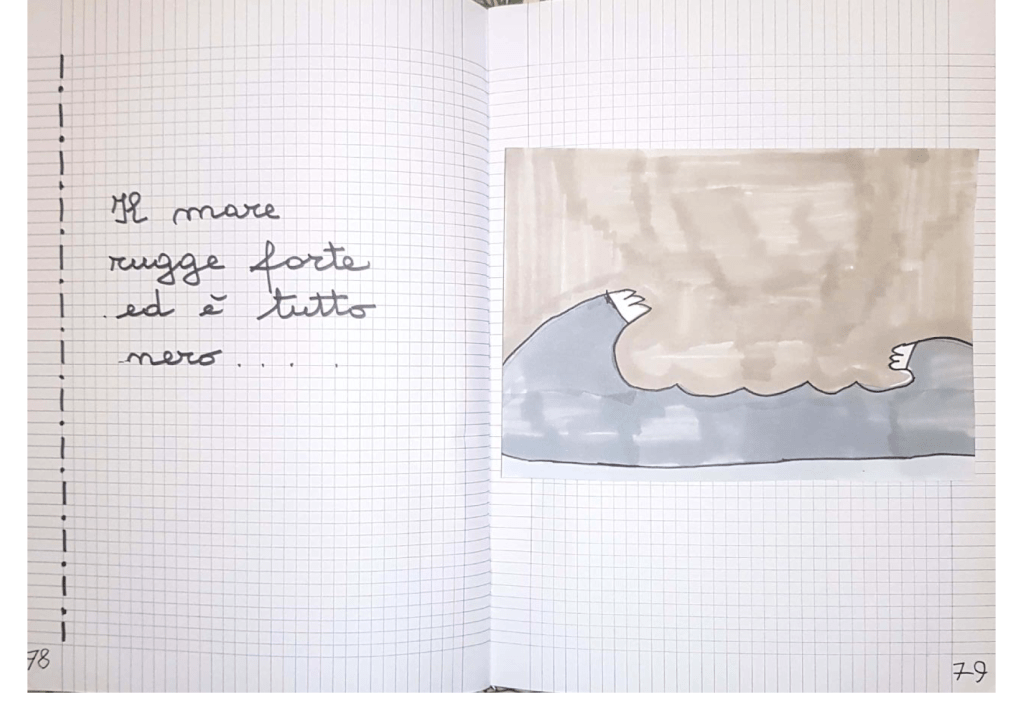 Il mare
rugge forte
ed è tutto
nero....
78
79